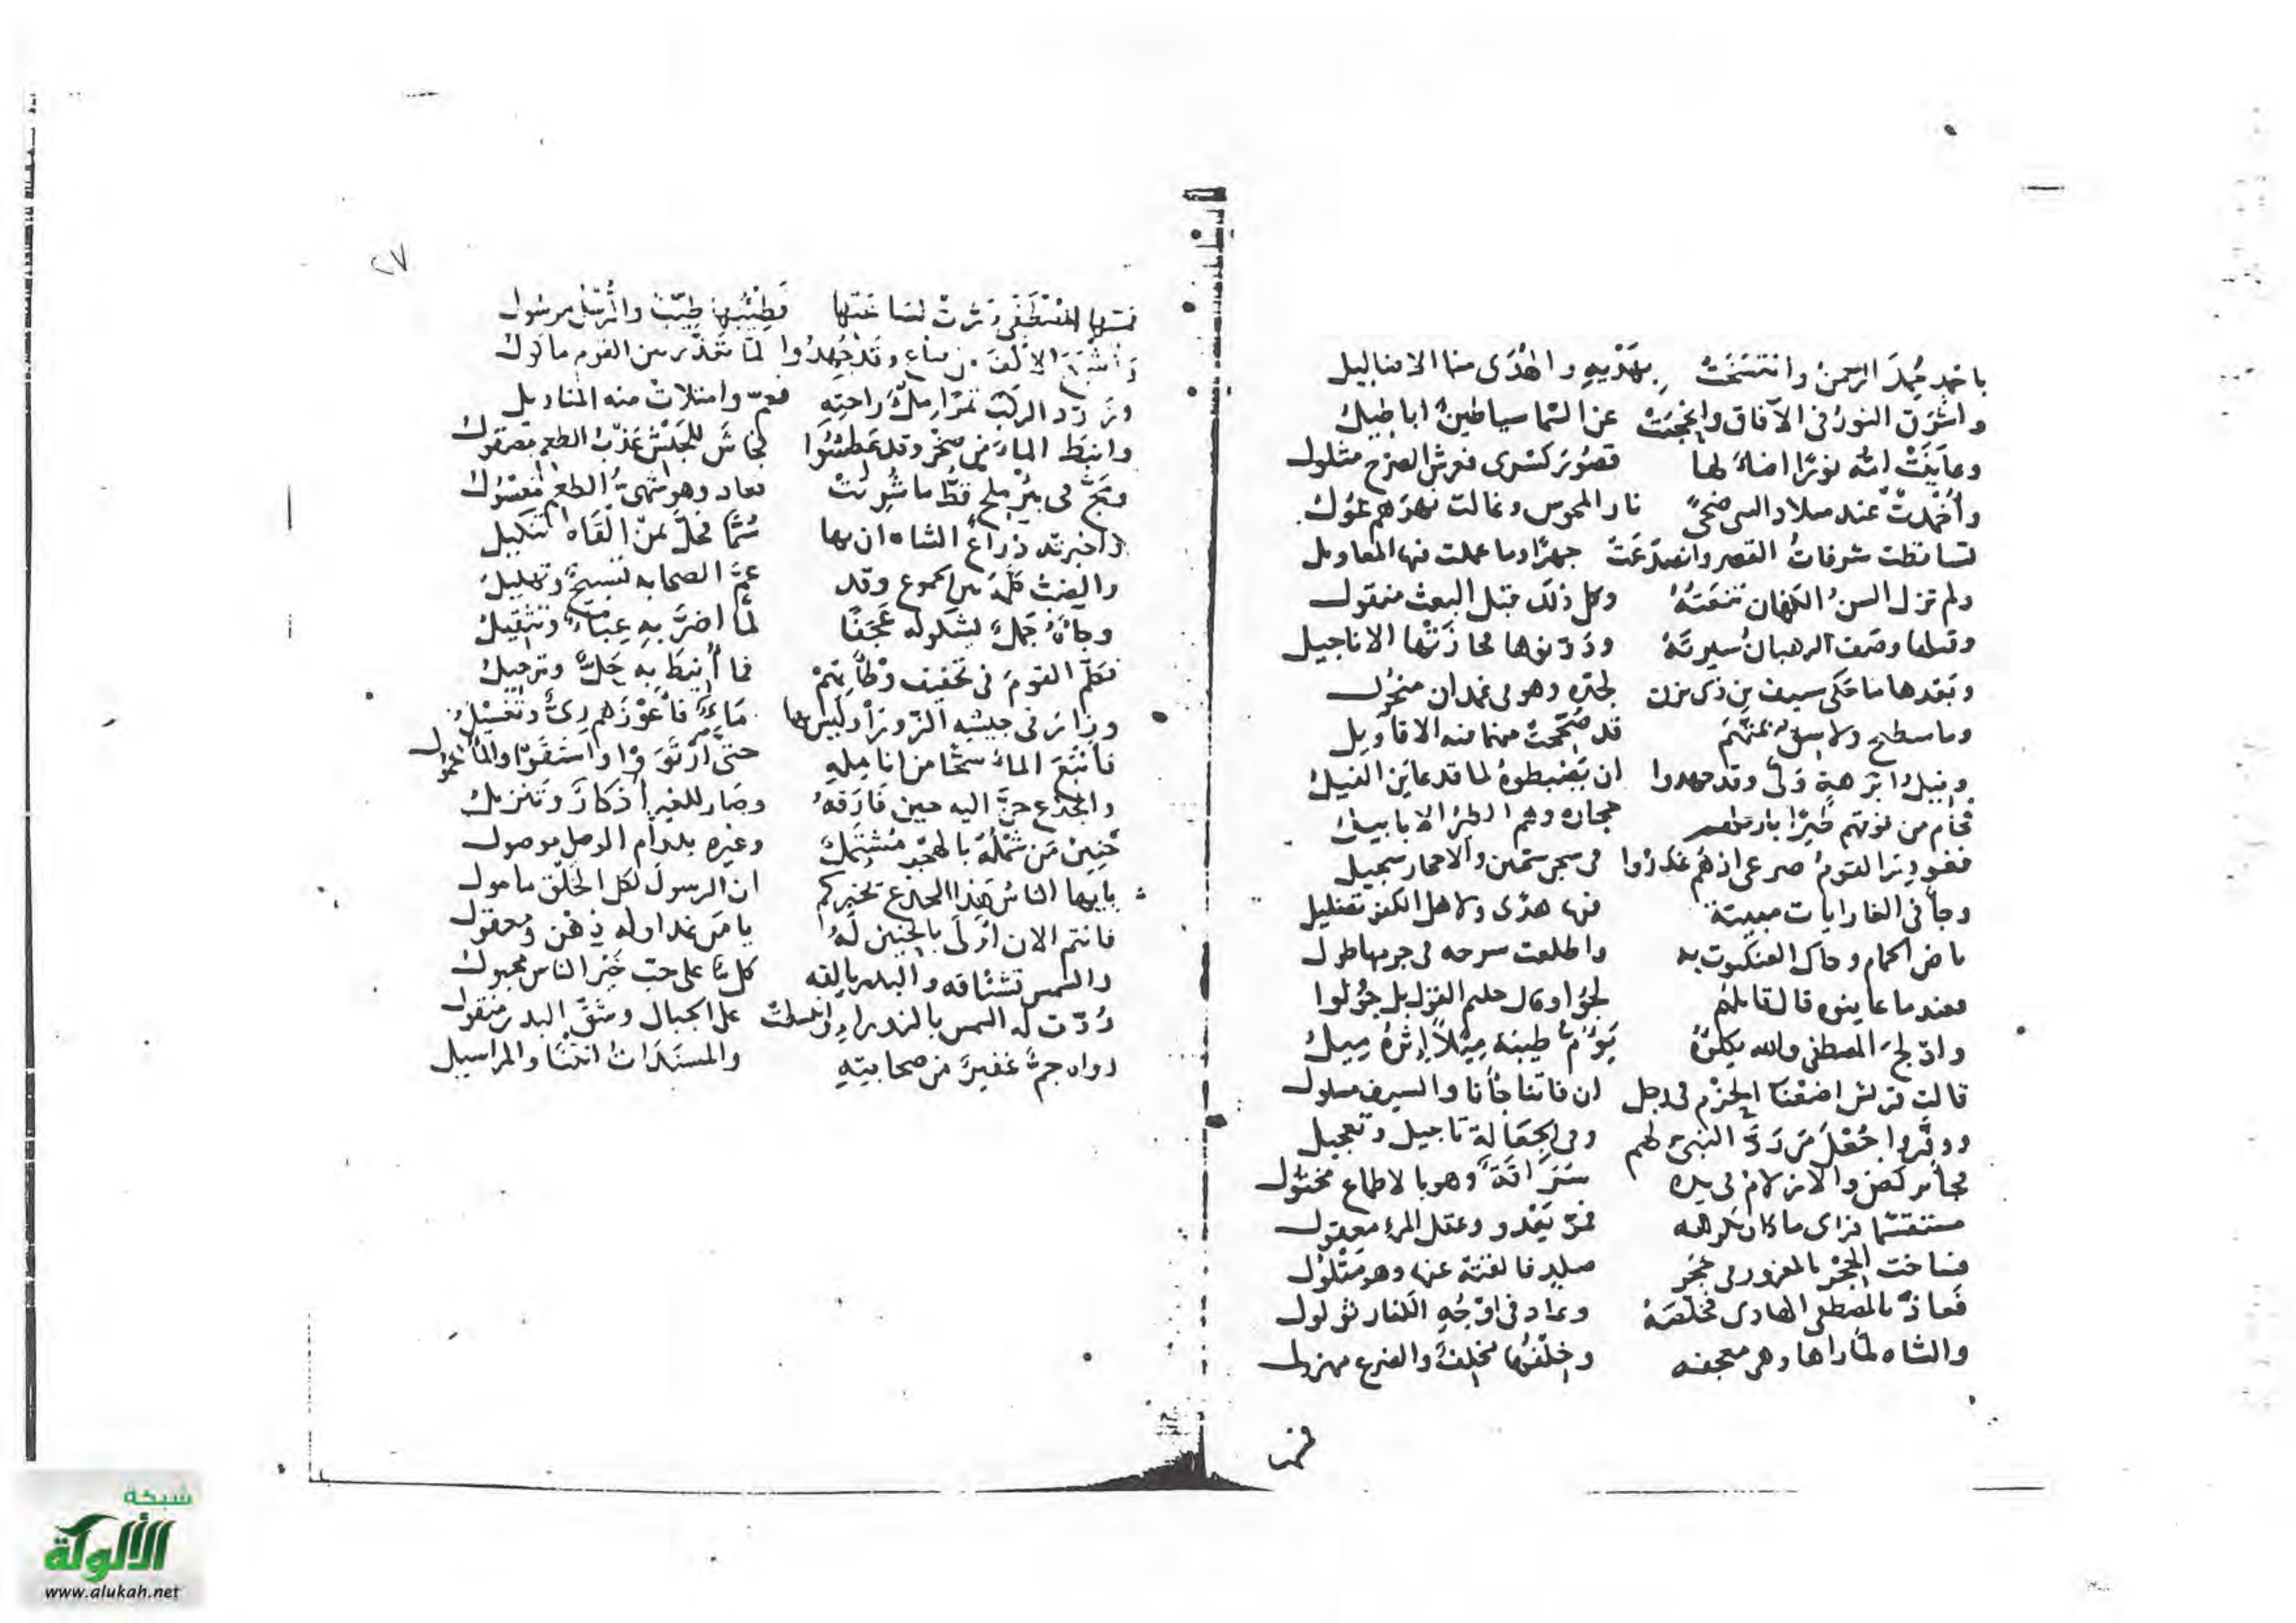 باحمد حمد الرحمن وانتسخت بهديه واهدى منا الاضاليل
واشرق النور فى الآفاق واحتجبت عن السما سياطين اباطيل
وعاينت امه نورا اضاء لها قصور كسرى فعرش الصرح مثلول
وأخمدت عند ميلاد النبى ضحى نار المجوس وغالت نهرهم غول
تساقطت شرفات القصر وانصدعت جهرا وما عملت فيها المعاويل
ولم تزل السن الكهان تنعته وكل ذلك قبل البعث منقول
وقبلها وصف الرهبان سيرته ودونوها محاذتها الاناجيل
وبعدها ما حكى سيف بن ذى يزن لجده وهو فى غمدان
وما سطيح ولا شق بمتهم قد صححت منهما منه الاقاويل
وفيل ابرهة ولى وقد جهدوا ان يضبطوه لما قد عاين الفيل
فحام من فوقهم طيرا حجارة وهم الطير الابابيل
فغودر القوم صرعى اذ هم غدروا فى سجن سجين والاحجار سجيل
وجا فى الغار ايات مبينة فيها هدى ولاهل الكفر تضليل
باض الحمام وحاك العنكبوت به واطلعت سرحه فى جريها طول
فعندما عاينوه قال قايلهم
وادلج المصطفى والله يكلؤه يؤم طيبة ميلا إثره ميل
قالت قريش اضعنا الحزم فى رجل ان فاتنا فجأنا والسيف مسلول
ووفروا جعل من رد النبى لهم وفى الجعالة تاجيل وتعجيل
فجا يركض والازلام فى يده سراقة وهو بالاطماع مختول
مستقسما فراى ما كان يكرهه فمر يعدو وعقل المرء معقول
فساخت الحجر بالمغرور فى حجر صلد فالفته عنها وهو متلول
فعاذ بالمصطفى الهادى فخلصه وعاد فى اوجه الكفار ثولول
والشاه لما راها وهى معجفه واخلفها مخلف والضرع مهزول
فمسـ
٢٧
فمسها المصطفى درت لساعتها فطيبها طيب والرسل مرسول
واشبع الالف من صاع وقد جهدوا لما تحذر من القوم ماكول
وزود الركب تمرا ملء راحته فعم وامتلات منه المناديل
وانبط الماء من صخر وقد عطشوا فجاش للجيش عذب الطعم مصقول
ومج فى بئر ملح قط ما شربت فعاد وهو شهى الطعم معسول
واخبرته ذراع الشاه ان بها سما فحل بمن القاه تنكيل
والضب كلمه بين الجموع وقد عم الصحابه تسبيح وتهليل
وجاءه جمل يشكو له عجفا لما اضر به عباء وتثقيل
فكلم القوم فى تخفيف وطأتهم فما أنيط به حل وترحيل
وزار فى جيشه الزوراء وليس بها ماء فأعوزهم رى وتغسيل
فانبع الماء سحا من انامله حتى ارتووا واستقوا والماء
والجذع حن اليه حين فارقه وصار للغير أذكار وتنزيل
حنين من شمله بالهجر مشتمل وغيره بدوام الوصل موصول
يايها الناس هذا الجذع يخبركم ان الرسول لكل الخلق مامول
فانتم الان أولى بالحنين له يا من غدا وله ذهن ومعقول
والشمس تشتاقه والبدر يالفه كل شا على حب خير الناس مجبول
ردت له الشمس بالزوراء وانبسطت على الجبال وشق البدر منقول
رواه جم غفير من صحابته والمسندات اتتنا والمراسيل
شبكة
الألوكة
www.alukah.net